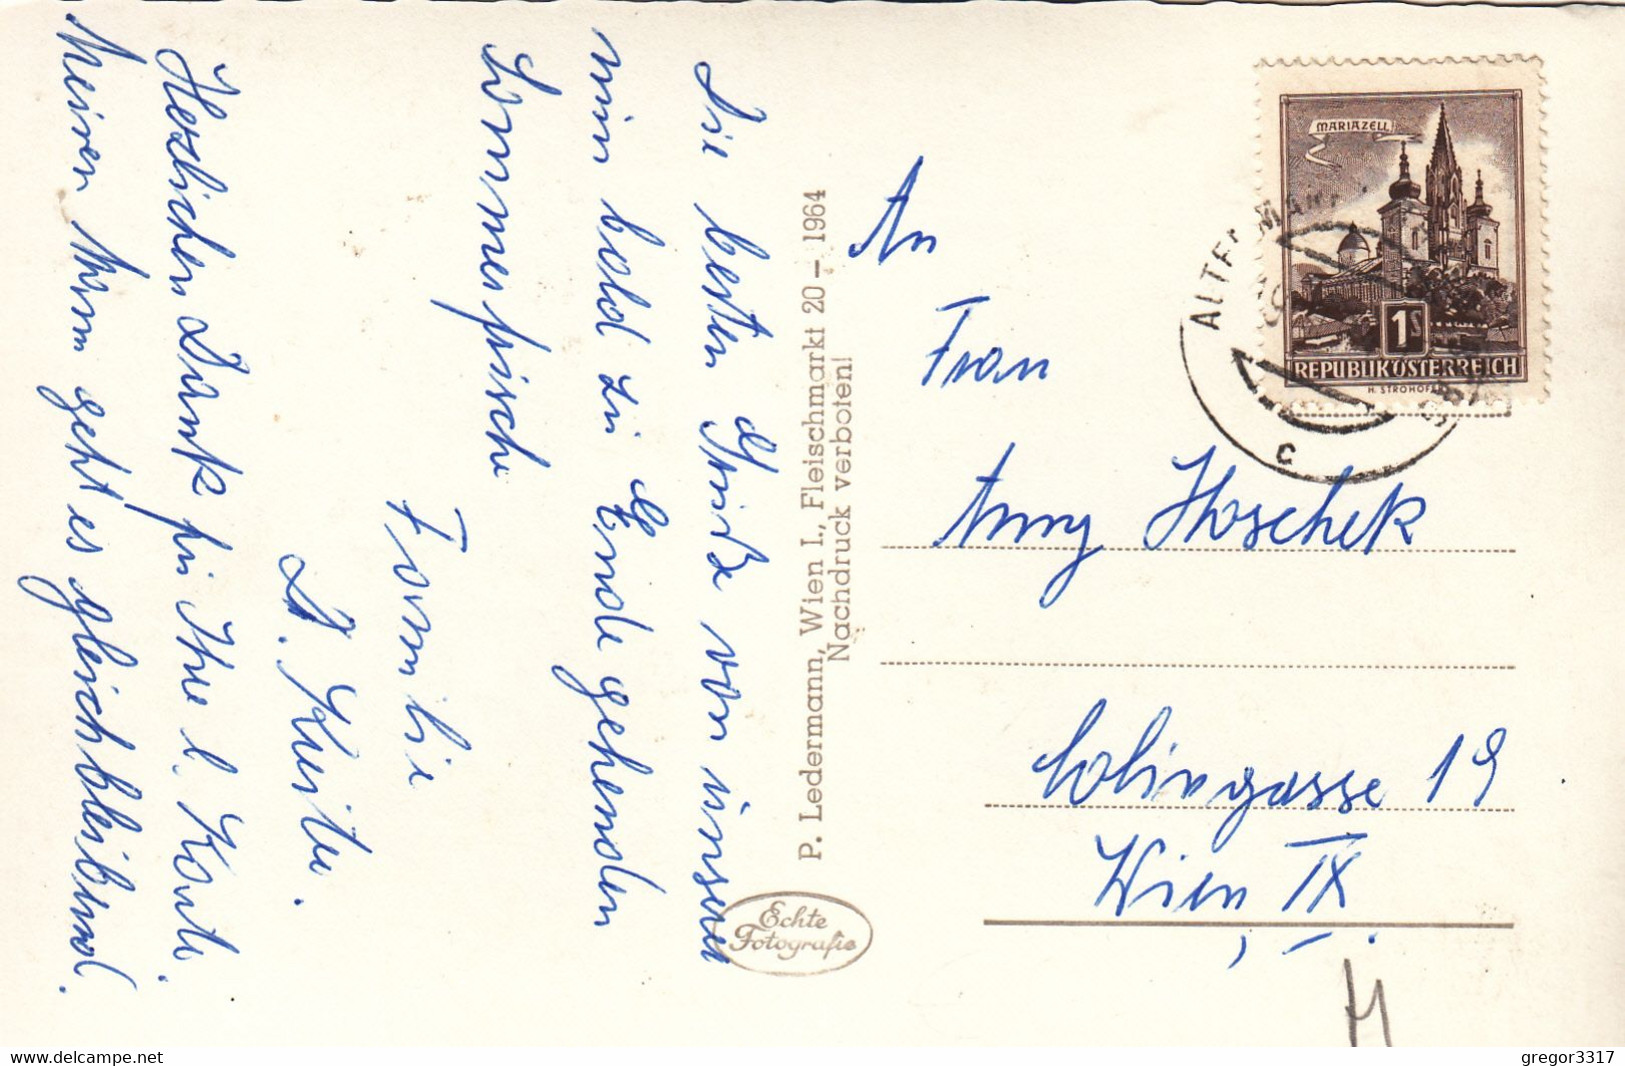 Die besten Grüße von unserer
nun bald zu Ende gehenden
Sommerfrische
Familie
A.
Herzlichen Dank für Ihre l. Karte.
Meinen Mann geht es gleichbleibend.
P. Ledermann, Wien I., Fleischmarkt 20 – 1964
Nachdruck verboten!
Echte
Fotografie
MARIAZELL
1S
REPUBLIK ÖSTERREICH
ALTENMARKT
C
An
Frau
Anny Hoschek
Wien IX
gregor3317